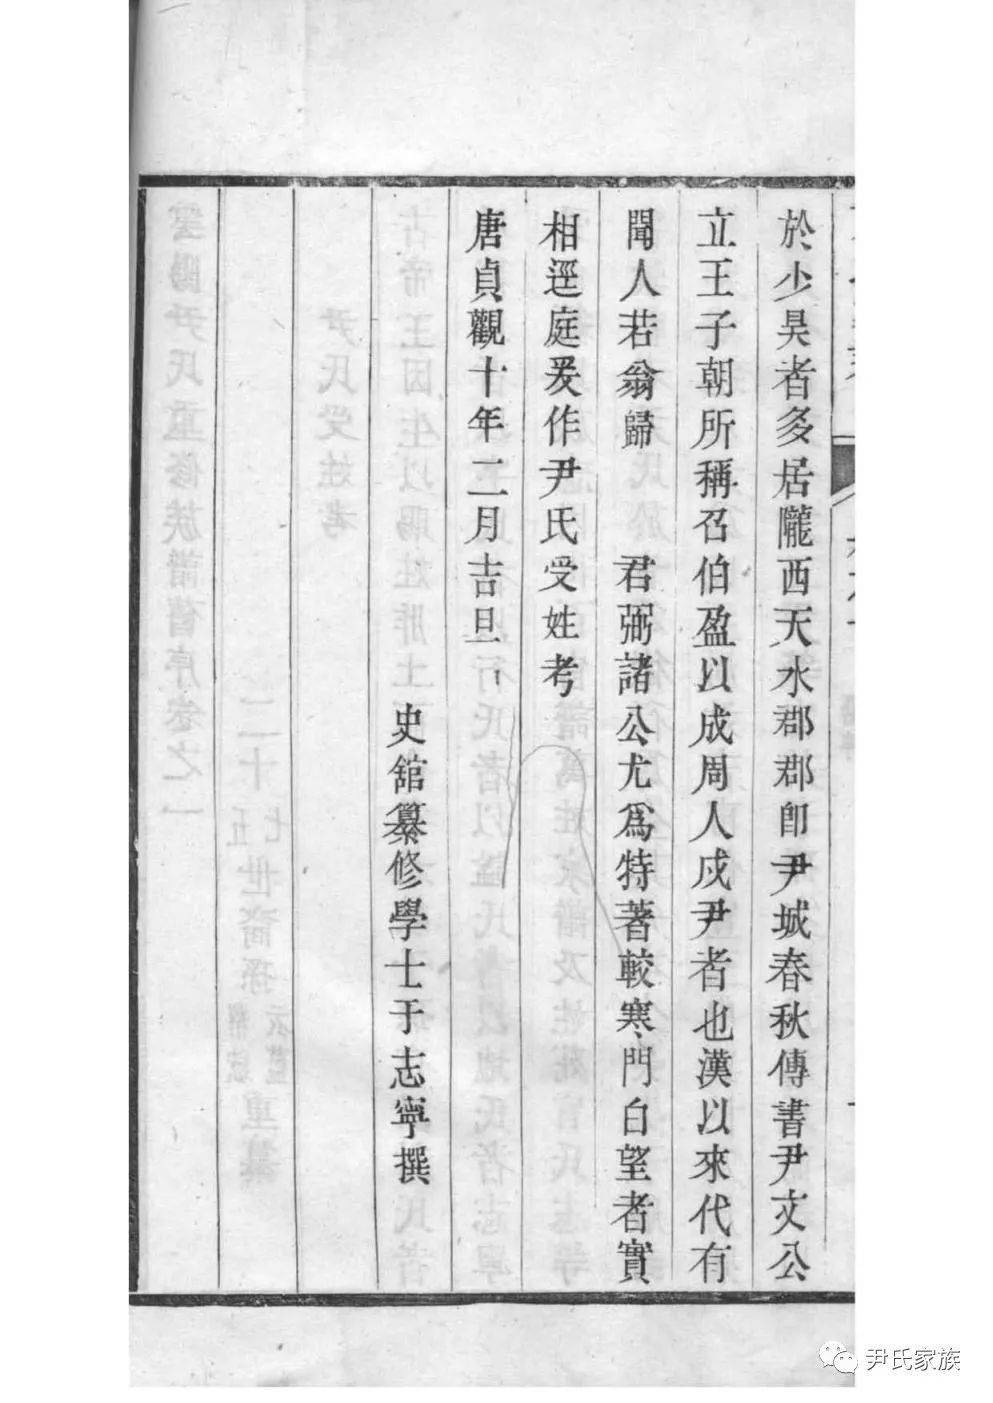 於少昊者多居隴西天水郡郡卽尹城春秋傳書尹文公
立王子朝所稱召伯盈以成周人戍尹者也漢以來代有
聞人若翁歸 君弼諸公尤爲特著較寒門白望者實
相逕庭爰作尹氏受姓考
唐貞觀十年二月吉旦
史舘纂修學士于志寧撰
尹氏家族